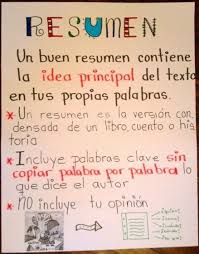 RESUMEN
Un buen resumen contiene
la idea principal del texto
en tus propias palabras.
* Un resumen es la versión con
densada de un libro, cuento o his
toria
* Incluye palabras clave sin
copiar palabra por palabra lo
que dice el autor
* NO incluye tu opinión